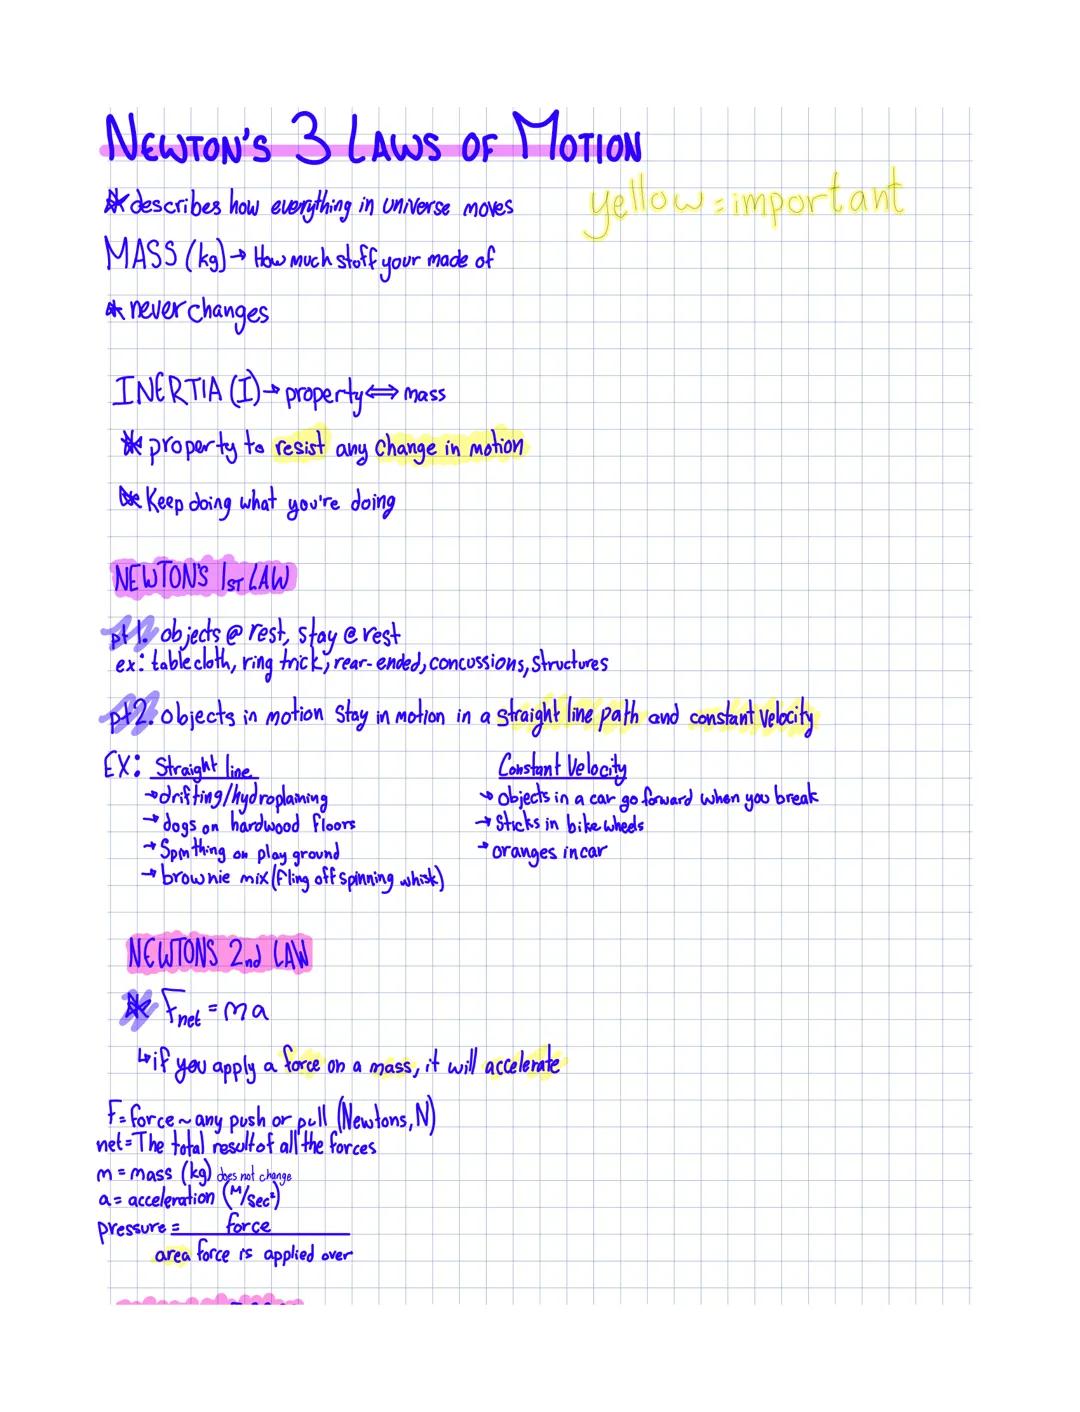 NEWTON'S 3 LAWS OF MOTION
describes how everything in universe moves
yellow = important
MASS (kg) → How much stuff your made of
never changes
INERTIA (I) → property ⟺ mass
property to resist any change in motion
Keep doing what you're doing
NEWTON'S 1ST LAW
pt 1. objects @ rest, stay @ rest
ex: table cloth, ring trick, rear-ended, concussions, structures
pt 2. objects in motion stay in motion in a straight line path and constant velocity
EX: Straight line
→ drifting/hydroplaining
→ dogs on hardwood floors
→ Spm thing on play ground
→ brownie mix (fling off spinning whisk)
Constant Velocity
→ Objects in a car go forward when you break
→ Sticks in bike wheels
→ oranges in car
NEWTONS 2nd LAW
Fnet = ma
↳ if you apply a force on a mass, it will accelerate
F = force ~ any push or pull (Newtons, N)
net = The total result of all the forces
m = mass (kg) does not change
a = acceleration (M/sec²)
pressure = force
area force is applied over